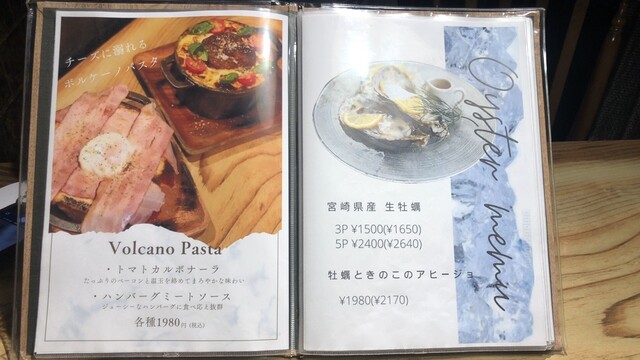 チーズに溺れる
ボルケーノパスタ
Volcano Pasta
・トマトカルボナーラ
たっぷりのベーコンと温玉を絡めてまろやかな味わい
・ハンバーグミートソース
ジューシーなハンバーグに食べ応え抜群
各種1980円(税込)
Oyster menu
宮崎県産 生牡蠣
3P ¥1500(¥1650)
5P ¥2400(¥2640)
牡蠣ときのこのアヒージョ
¥1980(¥2170)